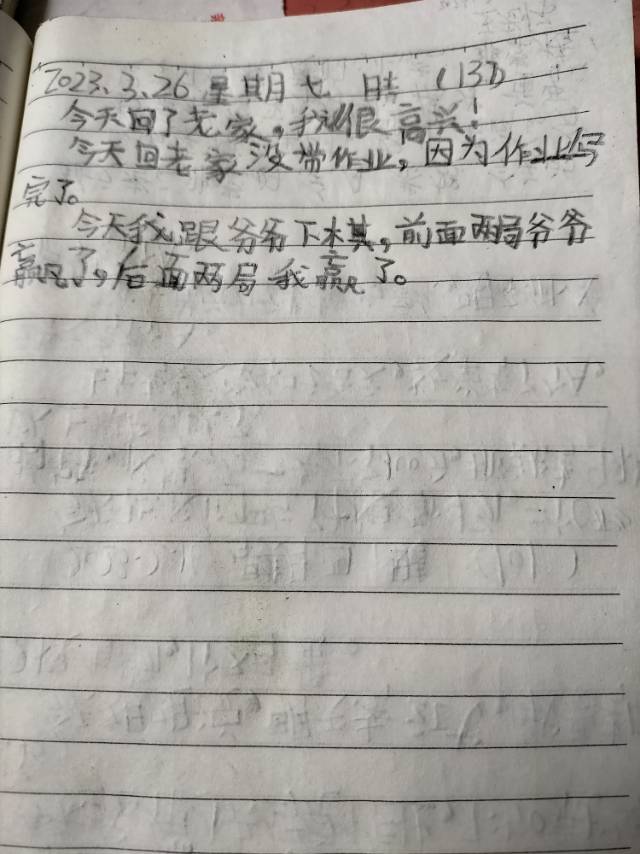 2023.3.26 星期七 晴 (137)
今天回了老家,我很高兴!
今天回老家没带作业,因为作业写
完了。
今天我跟爷爷下木其,前面两局爷爷
赢了,后面两局我赢了。